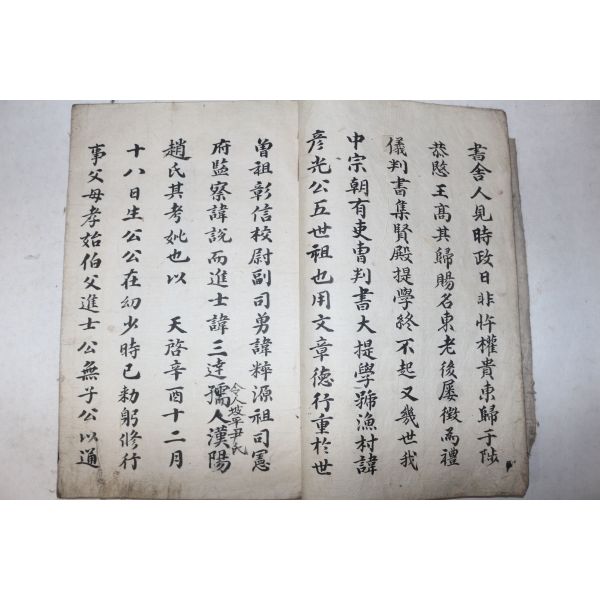 書舍人見時政日非忤權貴東歸于陟
恭愍王高其歸賜名東老後屢徵爲禮
儀判書集賢殿提學終不起又幾世我
中宗朝有吏曹判書大提學號漁村諱
彦光公五世祖也用文章德行重於世
曾祖彰信校尉副司勇諱粹源祖司憲
府監察諱說而進士諱三達孺人漢陽
令人坡平尹氏
趙氏其考妣也以 天啓辛酉十二月
十八日生公公在幼少時已勅躬修行
事父母孝始伯父進士公無子公以通